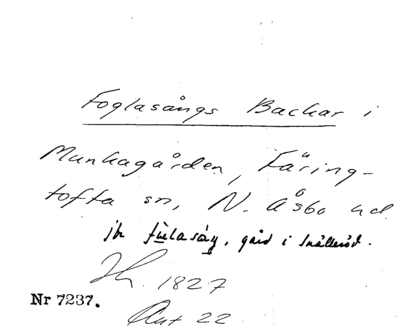 Foglasångs Backar i
Munkagården, Färing-
tofta sn, N. Åsbo hd.
jfr fúlasáŋ, gård i Snälleröd.
Jh. 1827
Nr 7237.
Ant 22